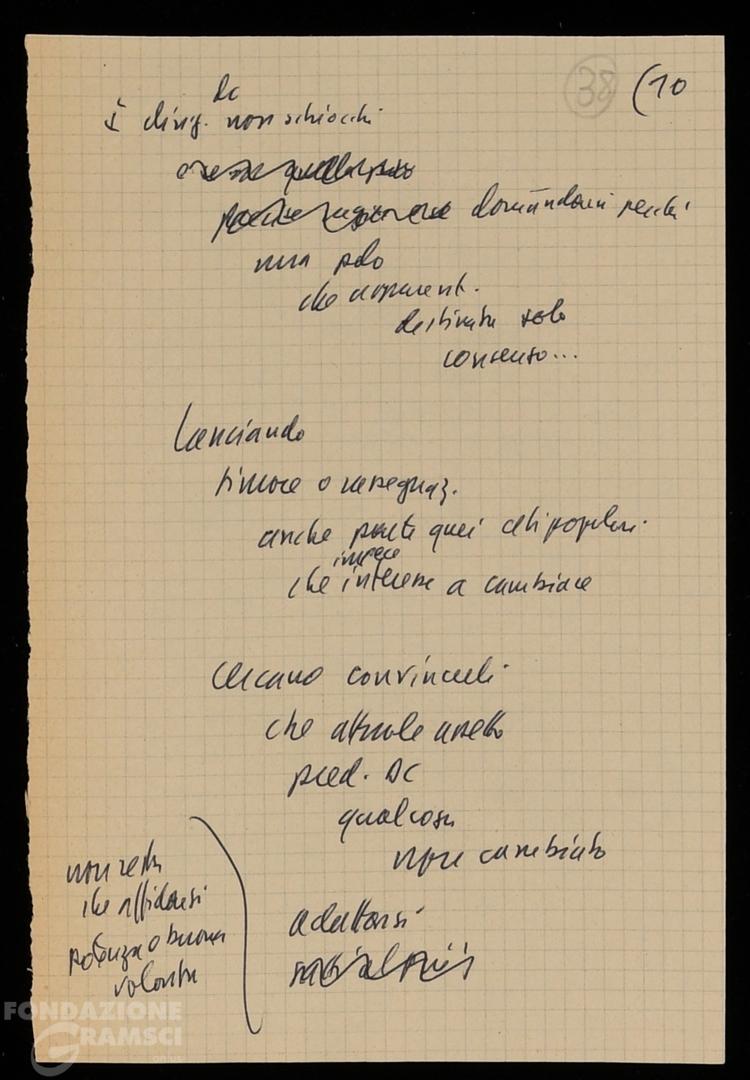 38 (10
Dc
I dirig. non sciocchi
domandarsi perché
una
che apparent.
destinata solo
consenso...
Lanciando
timore o rassegnaz.
anche parte quei ceti popolari
invece
che interesse a cambiare
cercano convincerli
che attuale assetto
pred. DC
qualcosa
non cambiato
adattarsi
non resta
che affidarsi
potenza o buona
volontà
FONDAZIONE
GRAMSCI